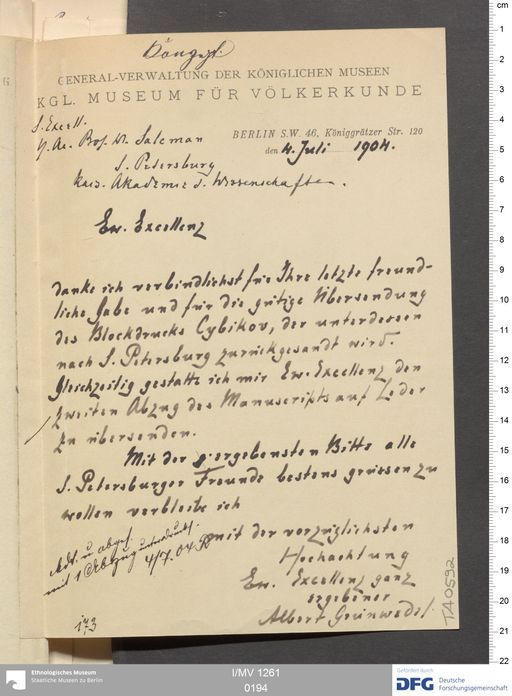 GENERAL-VERWALTUNG DER KÖNIGLICHEN MUSEEN
KGL. MUSEUM FÜR VÖLKERKUNDE
BERLIN S.W. 46, Königgrätzer Str. 120
den 4. Juli 1904.
S. Excell.
Prof. Dr. Saleman
S. Petersburg
Kais. Akademie d. Wissenschaften.
Ew. Excellenz
danke ich verbindlichst für Ihre letzte freund-
liche Gabe und für die gütige Übersendung
des Blockdrucks Cybikov, der unterdessen
nach S. Petersburg zurückgesandt wird.
Gleichzeitig gestatte ich mir Ew. Excellenz den
zweiten Abzug des Manuscripts auf Leder
zu übersenden.
Mit der ergebensten Bitte alle
S. Petersburger Freunde bestens grüssen zu
wollen verbleibe ich
mit der vorzüglichsten
Hochachtung
Ew. Excellenz ganz
ergebener
Albert Grünwedel.
u. abges.
mit 1 Abzug
4/7. 04
173
TA0592
cm
1
2
3
4
5
6
7
8
9
10
11
12
13
14
15
16
17
18
19
20
21
22
Ethnologisches Museum
Staatliche Museen zu Berlin
I/MV 1261
0194
Gefördert durch
DFG Deutsche
Forschungsgemeinschaft